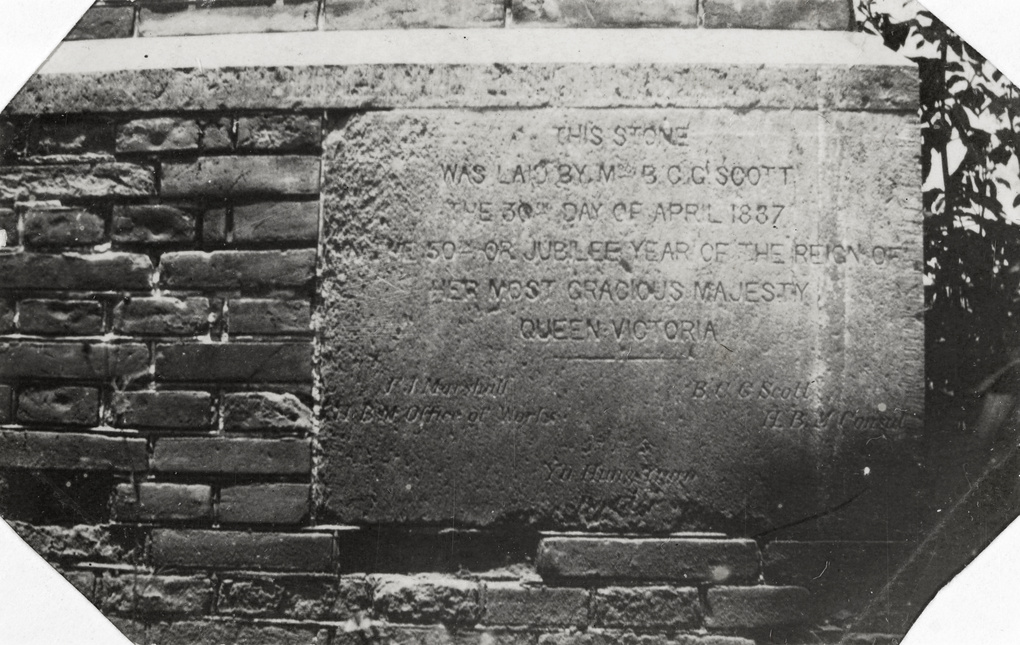 THIS STONE
WAS LAID BY Mrs B.C.G. SCOTT
THE 30TH DAY OF APRIL 1887
THE 50TH OR JUBILEE YEAR OF THE REIGN OF
HER MOST GRACIOUS MAJESTY
QUEEN VICTORIA
F. J. Marshall B. C. G. Scott
H. B. M. Office of Works. H. B. M. Consul